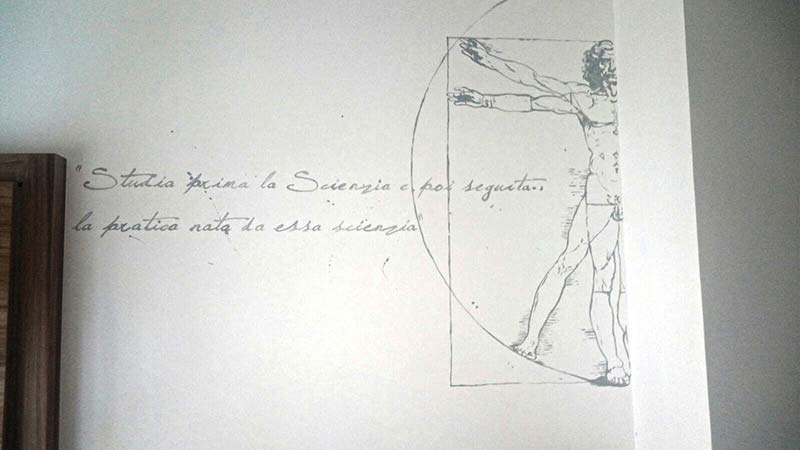 "Studia prima la Scienzia e poi seguita..
la pratica nata da essa scienzia"